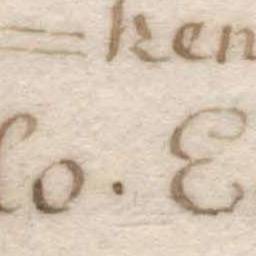 =ken
lo. E